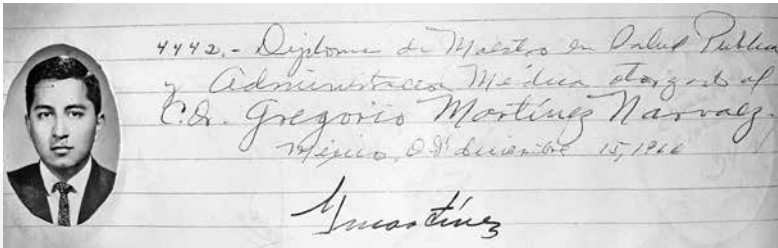 4442.- Diploma de Maestro en Salud Publica
y Administracion Médica otorgado al
C. Dr. Gregorio Martínez Narvaez.
México, D.F. diciembre 15, 1966
GMartínez